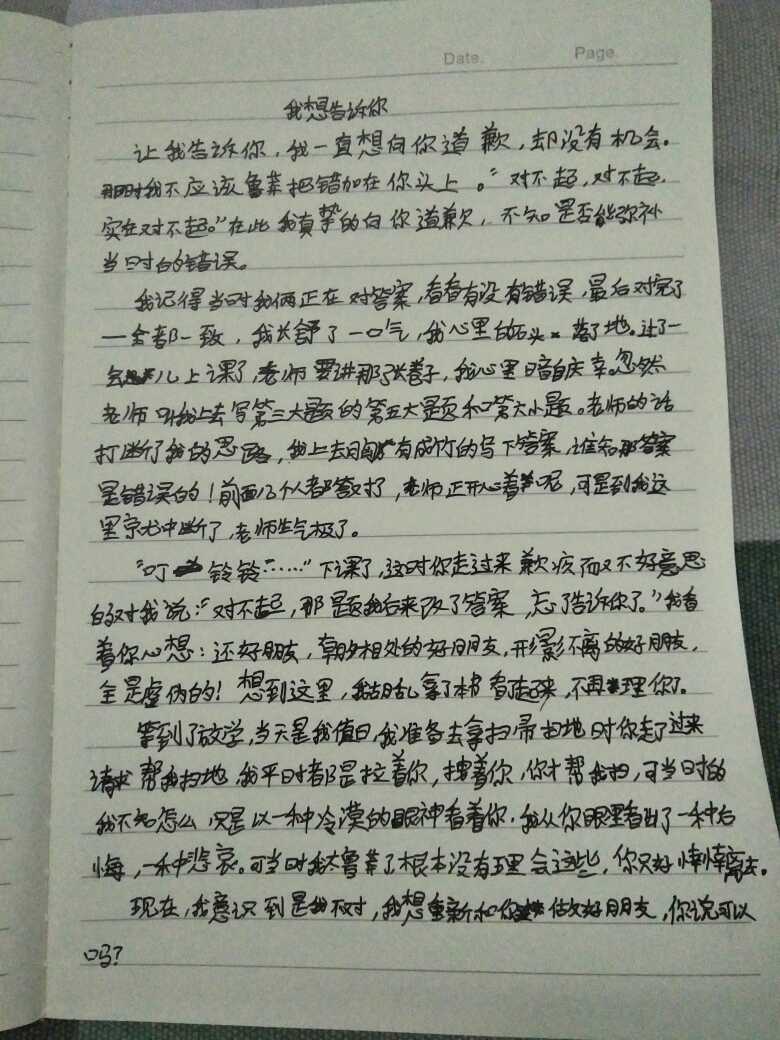 Date.
Page.
我想告诉你
让我告诉你，我一直想向你道歉，却没有机会。
那时我不应该鲁莽把错加在你头上。“对不起，对不起，
实在对不起。”在此我真挚的向你道歉，不知是否能弥补
当时的错误。
我记得当时我俩正在对答案，看看有没有错误，最后对完了
一全都一致，我长舒了一口气，我心里的石头落了地。过了一
会儿上课了，老师要讲那张卷子，我心里暗自庆幸。忽然
老师叫我上去写第三大题的第五大题和第六小题。老师的话
打断了我的思路，我上去胸有成竹的写下答案，谁知那答案
是错误的！前面几个人都答对了，老师正开心着呢，可是到我这
里就中断了，老师生气极了。
“叮铃铃……”下课了，这时你走过来歉疚而又不好意思
的对我说：“对不起，那题我后来改了答案，忘了告诉你了。”我看
着你心想：还好朋友，朝夕相处的好朋友，形影不离的好朋友，
全是虚伪的！想到这里，我胡乱拿了本书看了起来，不再理你了。
等到了放学，当天是我值日，我准备去拿扫帚扫地时你走了过来
请求帮我扫地，我平时都是拉着你，拽着你，你才帮我扫，可当时的
我不知怎么只是以一种冷漠的眼神看着你。我从你眼里看出了一种后
悔，一种悲哀。可当时我太鲁莽了根本没有理会这些，你只好悻悻离去。
现在，我意识到是我不对，我想重新和你做好朋友，你说可以
吗？